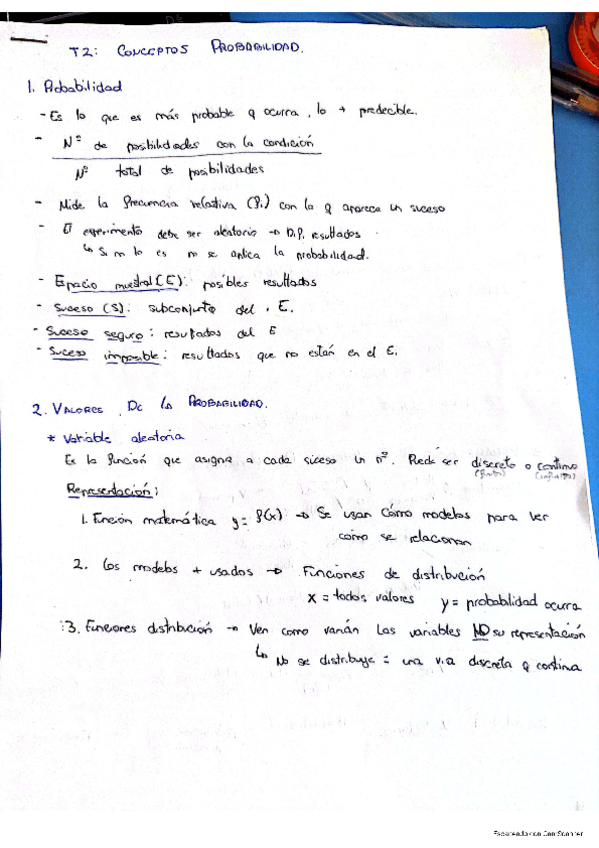 T2: CONCEPTOS PROBABILIDAD.
1. Probabilidad
- Es lo que es más probable q ocurra, lo + predecible.
- Nº de posibilidades con la condición
Nº total de posibilidades
- Mide la frecuencia relativa (fi) con la q aparezca un suceso
- El experimento debe ser aleatorio → Dif. resultados
↳ Si no lo es no se aplica la probabilidad.
- Espacio muestral (E): posibles resultados
- Suceso (S): subconjunto del E.
- Suceso seguro: resultados del E
- Suceso imposible: resultados que no están en el E.
2. VALORES DE LA PROBABILIDAD.
* Variable aleatoria
Es la función que asigna a cada suceso un nº. Puede ser discreto o continuo
(finito) (infinito)
Representación:
1. Función matemática y = f(x) → Se usan cómo modelos para ver
cómo se relacionan
2. Los modelos + usados → Funciones de distribución
x = todos valores y = probabilidad ocurra
3. Funciones distribución → Ven como varían las variables NO su representación
↳ No se distribuye = una v.a discreta q continua
Escaneado con CamScanner